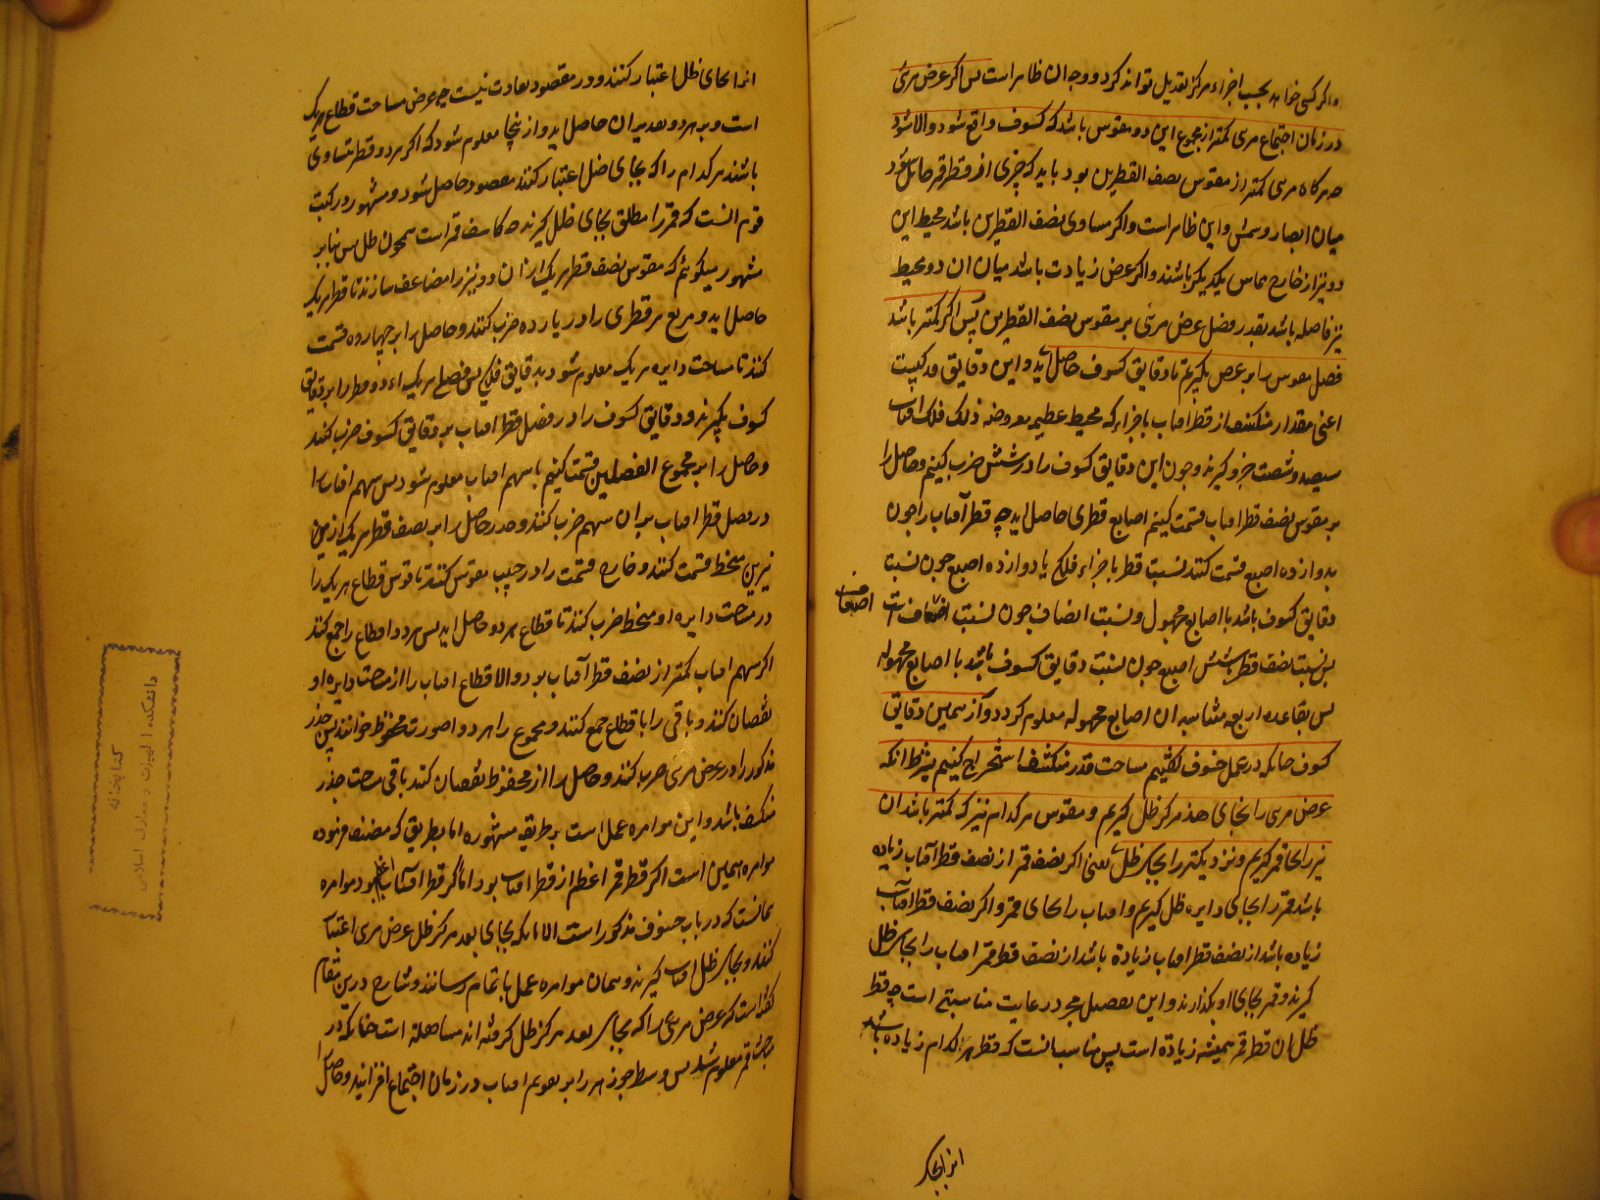 واگر کسی خواهد بحسب اجزاء مرکز تعدیل تواند کرد و وجه آن ظاهر است پس اگر عرض مرئی
در زمان اجتماع مری کمتر از مجموع این دو مقوس باشد که کسوف واقع شود والا نشود
چه هرگاه مرئی کمتر از مقوس نصف القطرین بود باید که چیزی از قطر قمر حائل شود
میان ابصار و شمس و این ظاهر است و اگر مساوی نصف القطرین باشد محیط این
دو نیز از خارج مماس یکدیگر باشند و اگر عرض زیادت باشد میان آن دو محیط
نیز فاصله باشد بقدر فضل عرض مرئی بر مقوس نصف القطرین پس اگر کمتر باشد
فضل مقوس را بر عرض بگیریم تا دقایق کسوف حاصل آید و این دقایق
اعنی مقدار منکسف از قطر آفتاب باجزاء که محیط عظیمه مفروضه ذلک فلک آفتاب
سیصد و شصت جزو گیرند و چون این دقایق کسوف را در شش ضرب کنیم و حاصل را
بر مقوس نصف قطر آفتاب قسمت کنیم اصابع قطری حاصل آید چه قطر آفتاب را چون
بدوازده اصبع قسمت کنند نسبت قطر باجزاء فلکی با دوازده اصبع چون نسبت
دقایق کسوف باشد با اصابع مجهول و نسبت انصاف چون نسبت اضعاف است
اضعاف
پس نسبت نصف قطر بشش اصبع چون نسبت دقایق کسوف باشد با اصابع مجهوله
پس بقاعده اربعه متناسبه آن اصابع مجهوله معلوم گردد و از همین دقایق
کسوف چنانکه در عمل خسوف گفتیم مساحت قدر منکسف استخراج کنیم بشرط آنکه
عرض مری را بجای بعد مرکز ظل گیریم و مقوس هر کدام نیز که کمتر باشد آن
نیر را بجای قمر گیریم و نزدیکتر را بجای ظل یعنی اگر نصف قمر از نصف قطر آفتاب زیاده
باشد قمر را بجای دایره ظل گیریم و آفتاب را بجای قمر و اگر نصف قطر آفتاب
زیاده باشد از نصف قطر آفتاب زیادة باشد از نصف قطر قمر آفتاب را بجای ظل
گیرند و قمر بجای او بگذارند و این تفصیل مجرد رعایت مناسبتی است چه قطر
ظل از قطر قمر همیشه زیادة است پس مناسب آنست که قطر هر کدام زیاده باشد
انرا بجای
انرا بجای ظل اعتبار کنند و در مقصود تفاوت نیست چه عرض مساحت قطاع هر یک
است و بر هر دو تقدیر آن حاصل آید و از ینجا معلوم شود که اگر هر دو قطر متساوی
باشند هر کدام را که بجای ظل اعتبار کنند مقصود حاصل شود و مشهور در کتب
قوم آنست که قمر را مطلق بجای ظل گیرند چه کاسف قمر است همچون ظل پس بنا بر
مشهور میگوئیم که مقوس نصف قطر هر یک از آن دو نیر را مضاعف سازند تا قطر هر یک
حاصل آید و مربع هر قطری را در یازده ضرب کنند و حاصل را بر چهارده قسمت
کنند تا مساحت دایره هر یک معلوم شود بدقایق فلکی پس فضل هر یک از دو قطر را بر دقایق
کسوف بگیرند و دقایق کسوف را در فضل قطر آفتاب بر دقایق کسوف ضرب کنند
و حاصل را بر مجموع الفضلین قسمت کنیم تا سهم آفتاب معلوم شود پس سهم آفتاب را
در فضل قطر آفتاب بر آن سهم ضرب کنند و جذر حاصل را بر نصف قطر هر یک از این
نیرین منحط قسمت کنند و خارج قسمت را در جیب مقوس کنند تا قوس قطاع هر یک را
در مساحت دایره او منحط ضرب کنند تا قطاع هر دو حاصل آید پس هر دو قطاع را جمع کنند
اگر سهم آفتاب کمتر از نصف قطر آفتاب بود والا قطاع آفتاب را از مساحت دایره او
نقصان کنند و باقی را با قطاع جمع کنند و مجموع را هر دو صورت محفوظ خوانند پس جذر
مذکور را در عرض مرئی ضرب کنند و حاصل را از محفوظ نقصان کنند باقی مساحت جذر
منکسف باشد و این موامره عمل است بر طریقه مشهوره اما بطریقی که مصنف فرموده
موامره همین است اگر قطر قمر اعظم از قطر آفتاب بود و اما اگر قطر آفتاب اعظم بود موامره
همانست که در باب خسوف مذکور است الا آنکه بجای بعد مرکز ظل عرض مری اعتبار
کنند و بجای ظل آفتاب گیرند و همان موامره عمل باتمام رسانند و شارح درین مقام
گفته است که عرض مرئی را که بجای بعد مرکز ظل گرفته اند مساهله است چنانکه در
مباحث قمر معلوم شد پس وسط جوزهر را بر تقویم آفتاب در زمان اجتماع افزایند و حاصل
کتابخانه
دانشکده الهیات و معارف اسلامی